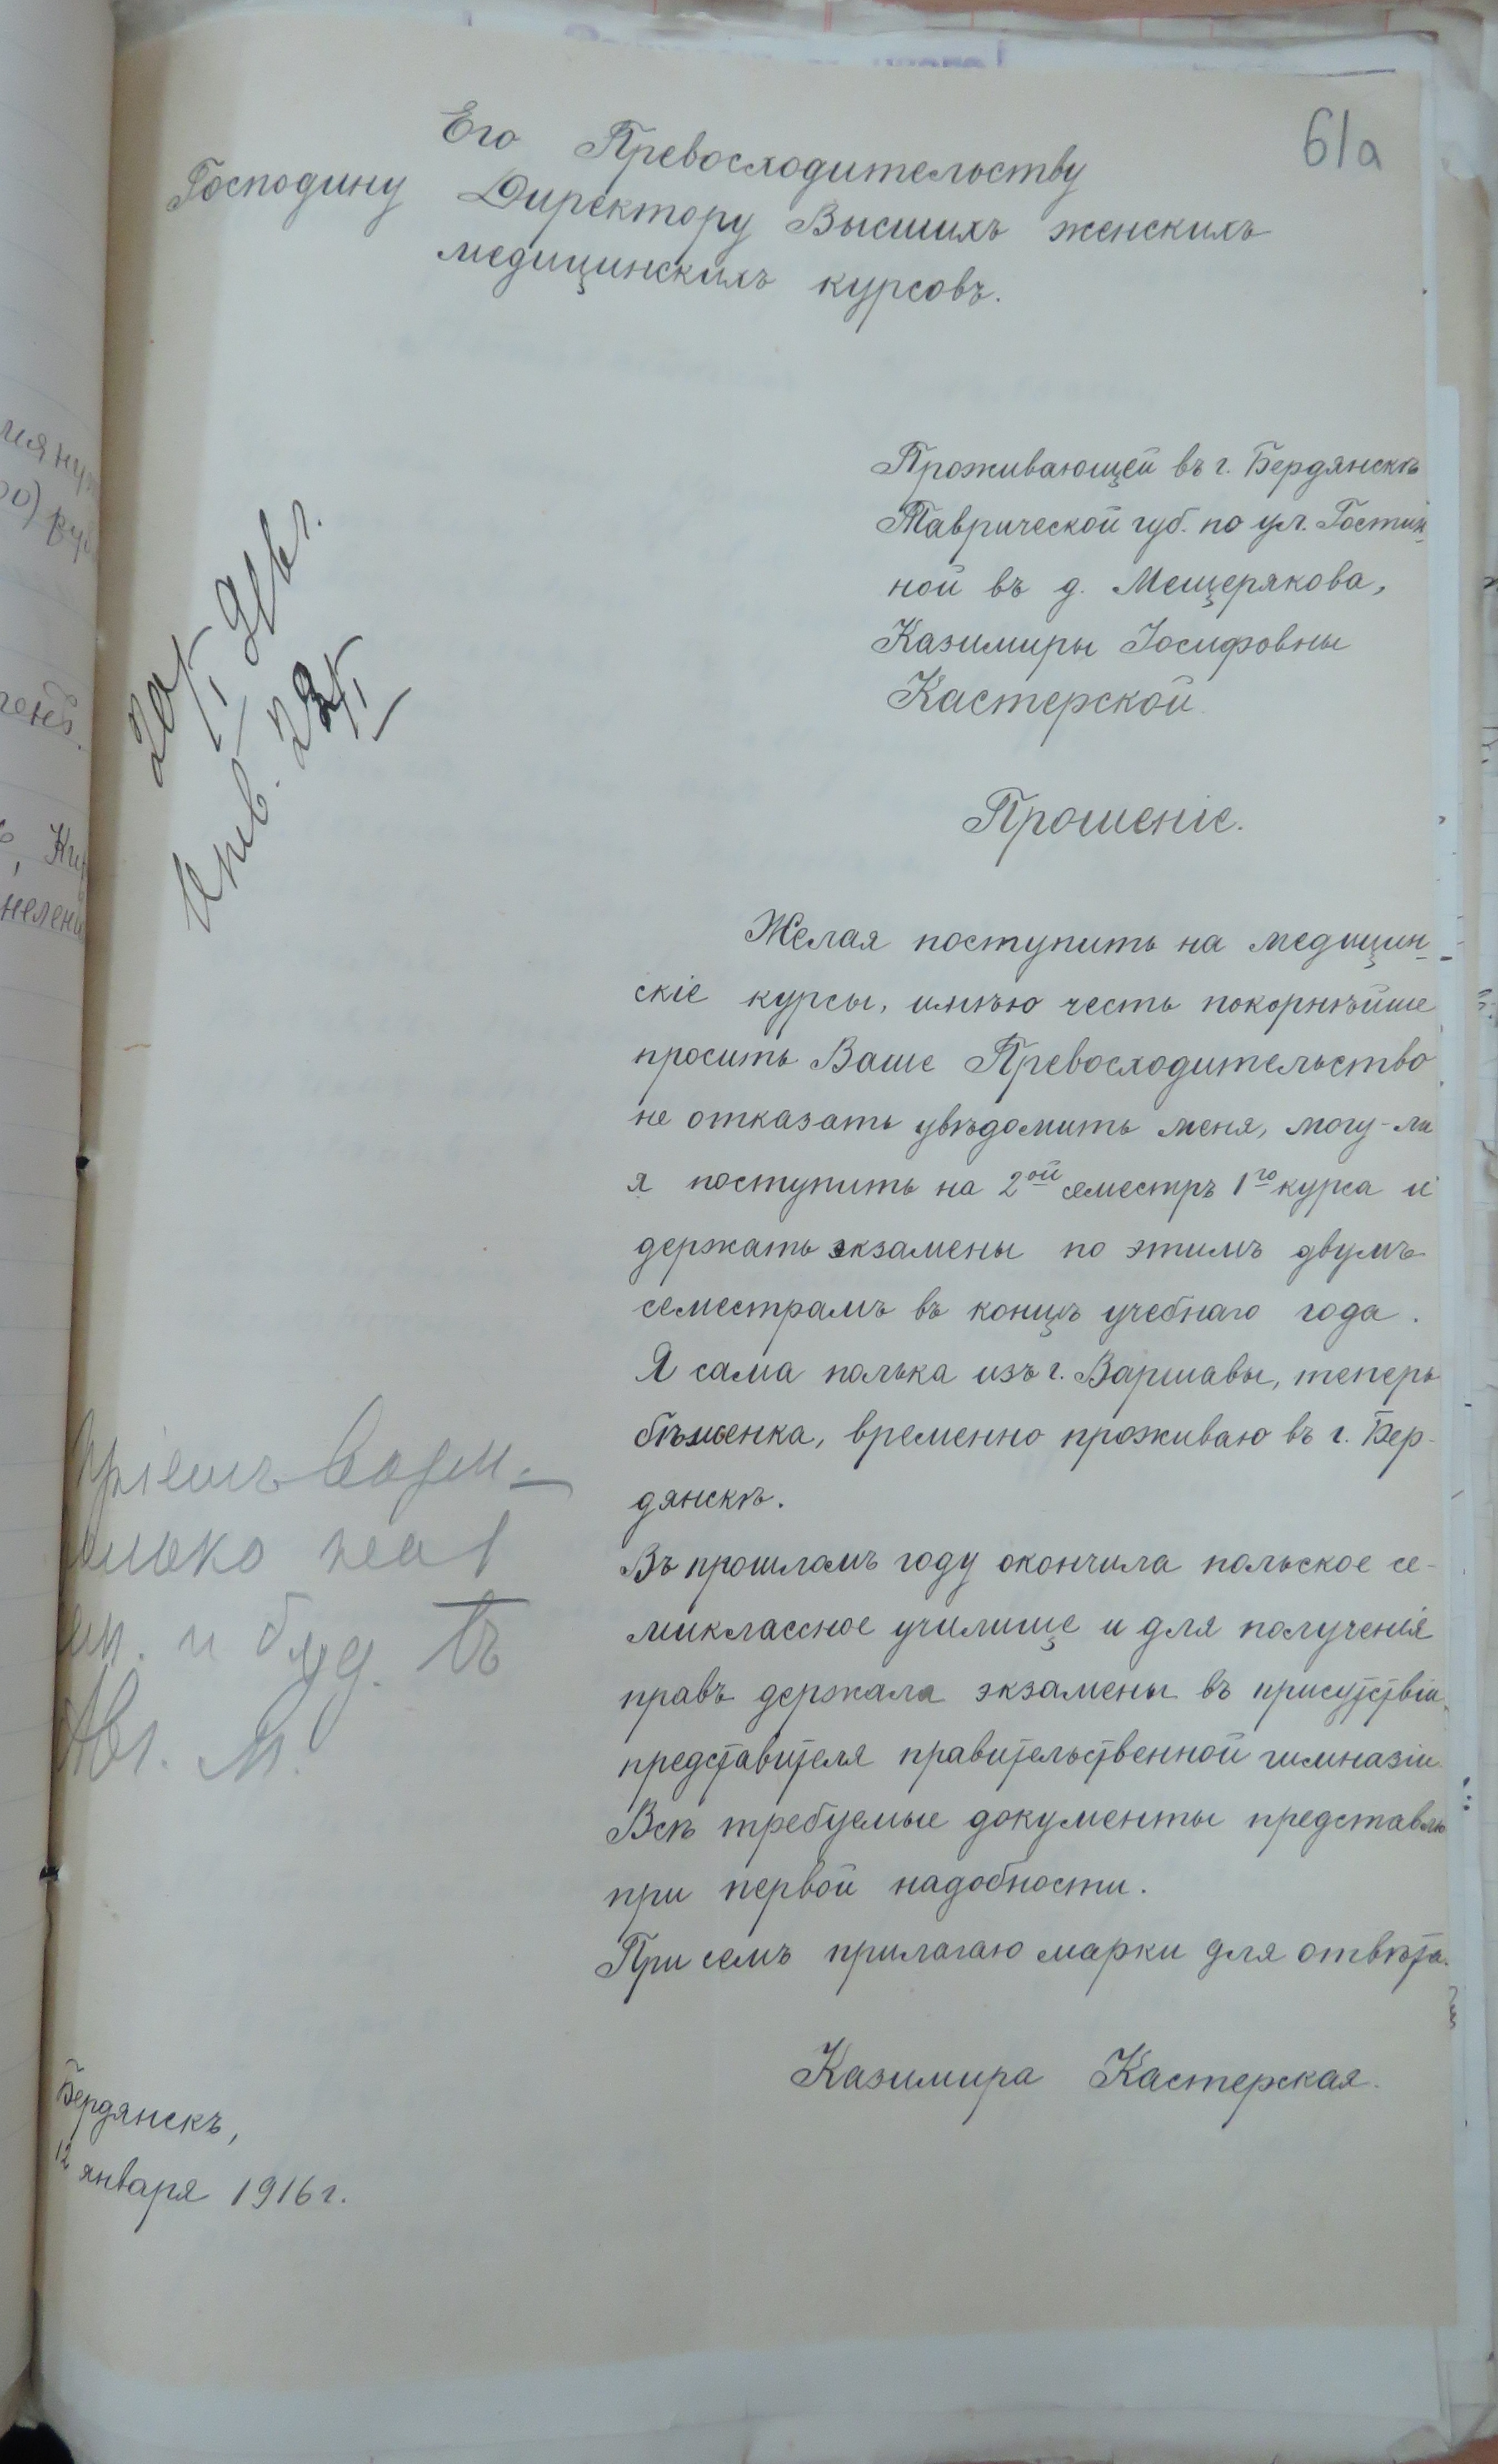 61а
Его Превосходительству
Господину Директору Высшихъ женскихъ
медицинскихъ курсовъ.
Проживающей въ г. Бердянскѣ
Таврической губ. по ул. Гостин-
ной въ д. Мещерякова,
Казимиры Іосифовны
Кастерской.
Прошеніе.
Желая поступить на медицин-
скіе курсы, имѣю честь покорнѣйше
просить Ваше Превосходительство
не отказать увѣдомить меня, могу-ли
я поступить на 2ой семестръ 1го курса и
держать экзамены по этимъ двумъ
семестрамъ въ концѣ учебнаго года.
Я сама полька изъ г. Варшавы, теперь
бѣженка, временно проживаю въ г. Бер-
дянскѣ.
Въ прошломъ году окончила польское се-
миклассное училище и для полученія
правъ держала экзамены въ присутствіи
представителя правительственной гимназіи.
Всѣ требуемые документы представлю
при первой надобности.
При семъ прилагаю марки для отвѣта.
Казимира Кастерская.
Бердянскъ,
12 января 1916 г.
Пріемъ
только на 1
и буд. въ
Авг.